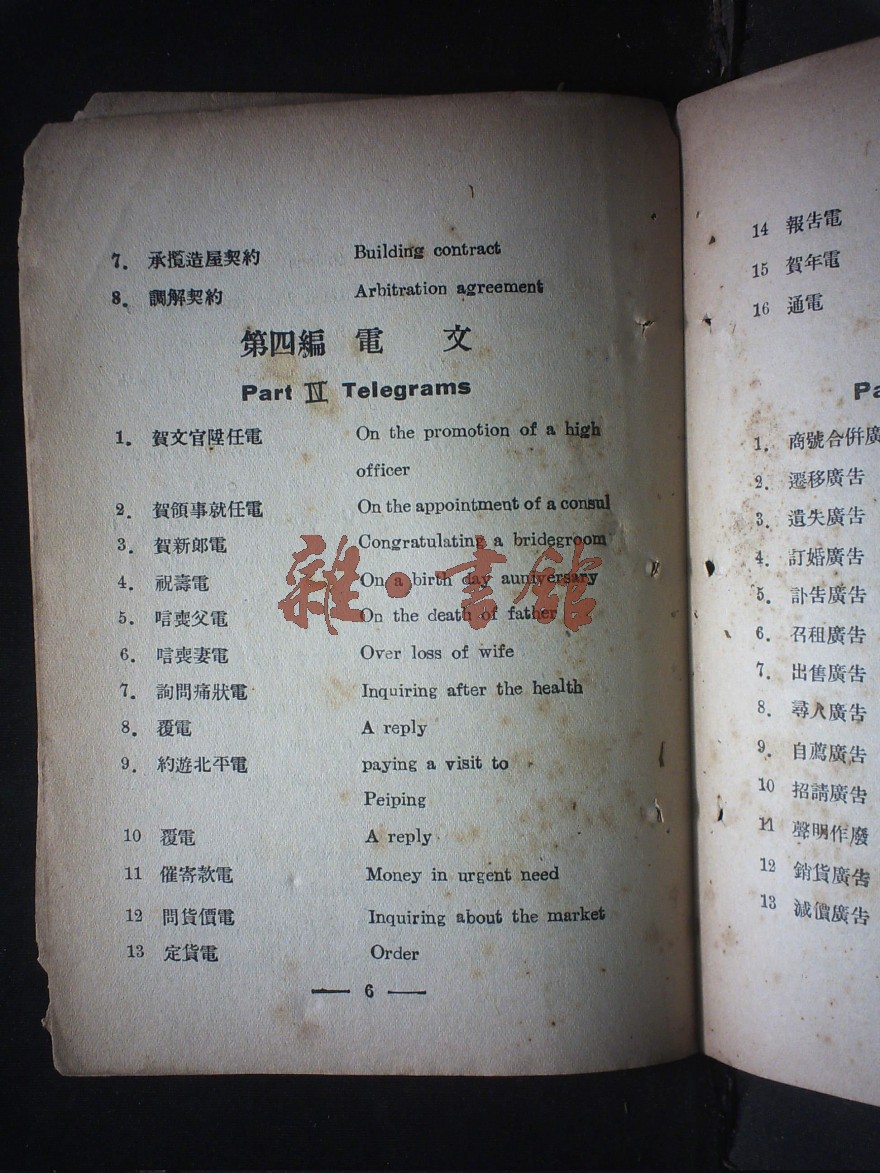 7. 承攬造屋契約 Building contract
8. 調解契約 Arbitration agreement
第四編 電 文
Part IV Telegrams
1. 賀文官陞任電 On the promotion of a high
officer
2. 賀領事就任電 On the appointment of a consul
3. 賀新郎電 Congratulating a bridegroom
4. 祝壽電 On a birth day auniversary
5. 唁喪父電 On the death of father
6. 唁喪妻電 Over loss of wife
7. 詢問病狀電 Inquiring after the health
8. 覆電 A reply
9. 約遊北平電 paying a visit to
Peiping
10 覆電 A reply
11 催寄款電 Money in urgent need
12 問貨價電 Inquiring about the market
13 定貨電 Order
— 6 —
雜·書館
14 報告電
15 賀年電
16 通電
Pa
1. 商號合併廣
2. 遷移廣告
3. 遺失廣告
4. 訂婚廣告
5. 訃告廣告
6. 召租廣告
7. 出售廣告
8. 尋人廣告
9. 自薦廣告
10 招請廣告
11 聲明作廢
12 銷貨廣告
13 減價廣告